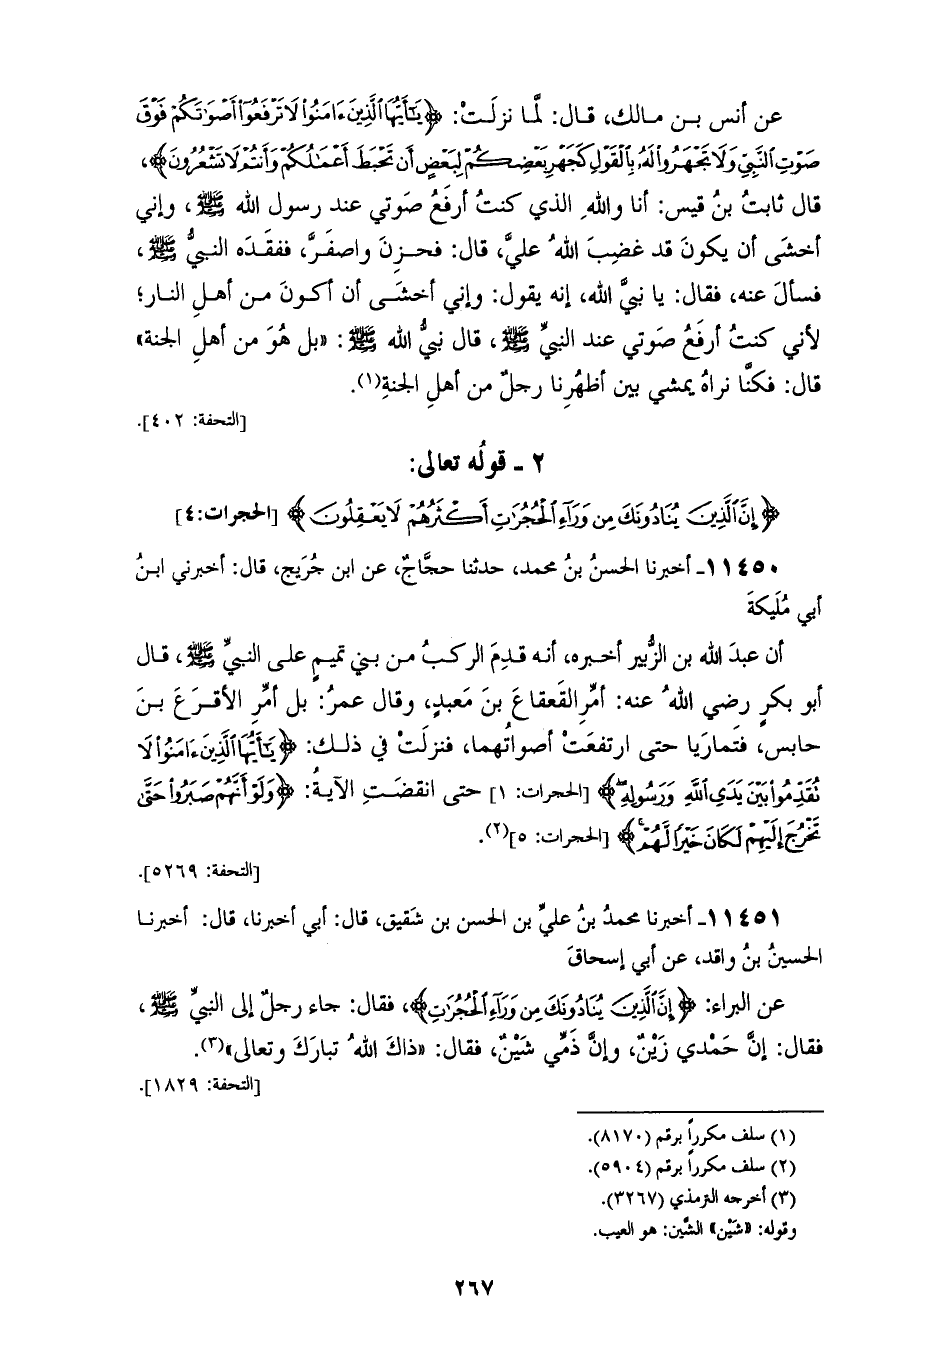 عن أنس بن مالك، قال: لَّما نزلَتْ: ﴿يَٰٓأَيُّهَا ٱلَّذِينَ ءَامَنُوا۟ لَا تَرْفَعُوٓا۟ أَصْوَٰتَكُمْ فَوْقَ
صَوْتِ ٱلنَّبِيِّ وَلَا تَجْهَرُوا۟ لَهُۥ بِٱلْقَوْلِ كَجَهْرِ بَعْضِكُمْ لِبَعْضٍ أَن تَحْبَطَ أَعْمَٰلُكُمْ وَأَنتُمْ لَا تَشْعُرُونَ﴾،
قال ثابتُ بنُ قيس: أنا واللهِ الذي كنتُ أرفَعُ صَوتي عند رسول الله ﷺ، وإني
أخشَى أن يكونَ قد غضِبَ اللهُ عليَّ، قال: فحزِنَ واصفَرَّ، ففقَدَه النبيُّ ﷺ،
فسألَ عنه، فقال: يا نبيَّ الله، إنه يقول: وإني أخشَى أن أكونَ من أهلِ النار؛
لأني كنتُ أرفَعُ صَوتي عند النبيِّ ﷺ، قال نبيُّ الله ﷺ: «بل هُوَ من أهلِ الجنة»
قال: فكنَّا نراهُ يمشي بين أظهُرِنا رجلٌ من أهلِ الجنةِ(١).
[التحفة: ٤٠٢].
٢ - قولُه تعالى:
﴿إِنَّ ٱلَّذِينَ يُنَادُونَكَ مِن وَرَآءِ ٱلْحُجُرَٰتِ أَكْثَرُهُمْ لَا يَعْقِلُونَ﴾ [الحجرات:٤]
١١٤٥٠- أخبرنا الحسنُ بنُ محمد، حدثنا حجَّاجٌ، عن ابن جُرَيج، قال: أخبرني ابنُ
أبي مُلَيكةَ
أن عبدَ الله بن الزُّبير أخبره، أنه قدِمَ الركبُ من بني تميمٍ على النبيِّ ﷺ، قال
أبو بكرٍ رضي اللهُ عنه: أمِّرِ القَعقاعَ بنَ مَعبدٍ، وقال عمرُ: بل أمِّرِ الأقرَعَ بنَ
حابس، فتمارَيا حتى ارتفعَتْ أصواتُهما، فنزلَتْ في ذلك: ﴿يَٰٓأَيُّهَا ٱلَّذِينَ ءَامَنُوا۟ لَا
تُقَدِّمُوا۟ بَيْنَ يَدَيِ ٱللَّهِ وَرَسُولِهِۦ﴾ [الحجرات: ١] حتى انقضَتِ الآيةُ: ﴿وَلَوْ أَنَّهُمْ صَبَرُوا۟ حَتَّىٰ
تَخْرُجَ إِلَيْهِمْ لَكَانَ خَيْرًا لَّهُمْ﴾ [الحجرات: ٥](٢).
[التحفة: ٥٢٦٩].
١١٤٥١- أخبرنا محمدُ بنُ عليِّ بن الحسن بن شَقيق، قال: أبي أخبرنا، قال: أخبرنا
الحسينُ بنُ واقد، عن أبي إسحاقَ
عن البراء: ﴿إِنَّ ٱلَّذِينَ يُنَادُونَكَ مِن وَرَآءِ ٱلْحُجُرَٰتِ﴾، فقال: جاء رجلٌ إلى النبيِّ ﷺ،
فقال: إنَّ حَمْدي زَيْنٌ، وإنَّ ذَمِّي شَيْنٌ، فقال: «ذاكَ اللهُ تبارَكَ وتعالى»(٣).
[التحفة: ١٨٢٩].
(١) سلف مكرراً برقم (٨١٧٠).
(٢) سلف مكرراً برقم (٥٩٠٤).
(٣) أخرجه الترمذي (٣٢٦٧).
وقوله: «شَيْن» الشَّين: هو العيب.
٢٦٧